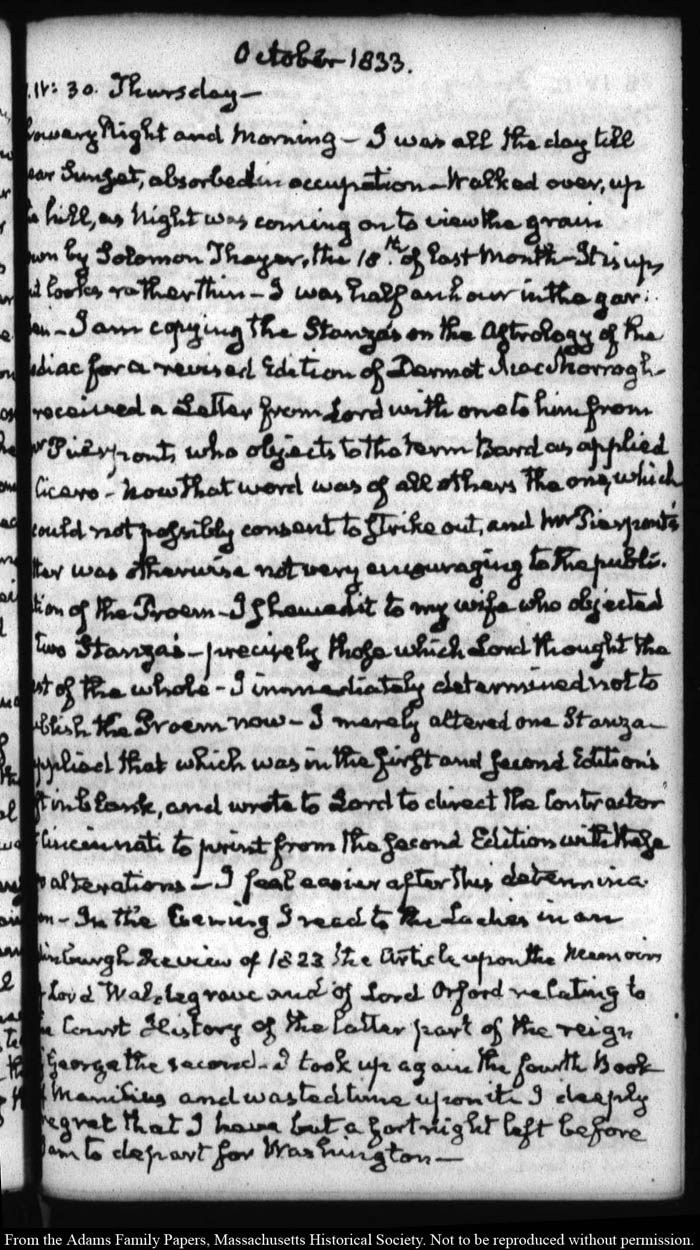 October 1833.
.IV: 30. Thursday—
howery Night and Morning — I was all the day till
ear Sunset, absorbed in occupation — Walked over, up
hill, as Night was coming on to view the grain
own by Solomon Thayer, the 18.th of last Month — It is up,
ut looks rather thin — I was half an hour in the gar:
den — I am copying the Stanza's on the Astrology of the
odiac for a revised Edition of Dermot MacMorrogh —
received a Letter from Lord with one to him from
Mr Pierpont, who objects to the term Bard as applied
Cicero — Now that word was of all others the one, which
could not possibly consent to strike out, and Mr Pierpont's
tter was otherwise not very encouraging to the publi:
tion of the Proem — I shewed it to my wife who objected
two Stanza's — precisely those which Lord thought the
st of the whole — I immediately determined not to
blish the Proem now — I merely altered one Stanza —
pplied that which was in the first and second Edition's
ft in blank, and wrote to Lord to direct the Contractor
Cincinnati to print from the second Edition with these
o alterations — I feel easier after this determina:
on — In the Evening I read to the Ladies in an
dinburgh Review of 1823 the Article upon the Memoirs
Lord Waldegrave and of Lord Orford relating to
e Court History of the latter part of the reign
George the second — I took up again the fourth Book
Manilius and wasted time upon it. I deeply
regret that I have but a fortnight left before
am to depart for Washington —
From the Adams Family Papers, Massachusetts Historical Society. Not to be reproduced without permission.